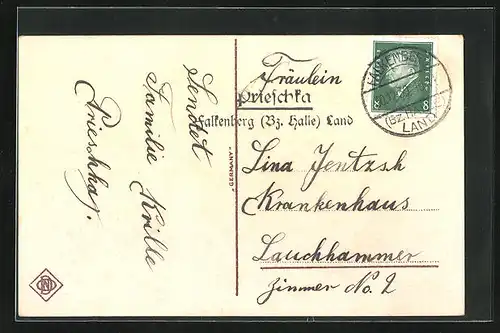 Sendet
Familie Krille
Prieschka.
"GERMANY"
Fräulein
Prieschka
Falkenberg (Bz. Halle) Land
Lina Jentzsh
Krankenhaus
Lauchhammer
Zimmer No. 2
8
8
FALKENBERG
(Bz. HALLE)
LAND